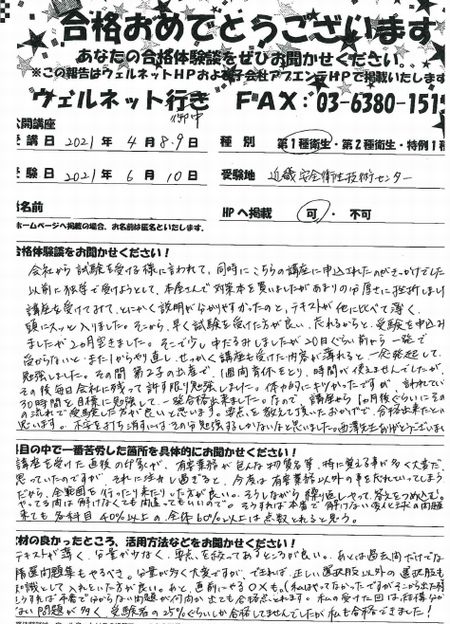 合格おめでとうございます
あなたの合格体験談をぜひお聞かせください。
※この報告はウェルネットHPおよび子会社アプエンテHPで掲載いたします
ウェルネット行き FAX:03-6380-151
御中
公開講座
受講日 2021年 4月 8.9日 種別 第1種衛生・第2種衛生・特例1種
受験日 2021年 6月 10日 受験地 近畿安全衛生技術センター
お名前 HPへ掲載 可・不可
ホームページへ掲載の場合、お名前は匿名といたします。
合格体験談をお聞かせください!
会社から試験を受ける様に言われて、同時にこちらの講座に申込されたのがきっかけでした
以前に独学で受けようとして、本屋さんで対策本を買いましたがあまりの分厚さに挫折しまし
講座を受けてみて、とにかく説明が分かりやすかったのと、テキストが他に比べて薄く、
頭にスッと入りました。そこから、早く試験を受けた方が良い、だれるからと、受験を申込み
ましたが2カ月空きました。そこで少し中だるみしましたが20日ぐらい前から一発で
受からないと、また1からやり直し、せっかく講座を受けた内容が薄れると、一念発起して、
勉強しました。その間第2子の出産で、1週間育休をとり、時間が使えませんでしたが、
その後毎日会社に残って許す限り勉強しました。体や頭にキツかったですが、言われてい
30時間を目標に勉強して、一発合格出来ました。なので、講座から1カ月後ぐらいにそ
の流れで受験した方が良いと思います。要点を教えて頂いたおかげで、合格出来たと
思います。不安を打ち消すにはその分勉強するしかないと思いました。西澤先生ありがとうございま
科目の中で一番苦労した箇所を具体的にお聞かせください!
講座を受けた直後の印象が、有害業務が色んな物質名等、特に覚える事が多く大変だ、
思っていたのですが、それに注力し過ぎると、今度は有害業務以外の事を忘れていってしまう
だから、全範囲を行ったり来たりった方が良い。そうしながら繰り返しやって答えをつめ込む。
やってる間は解けなくても間違ってもいいので。そうすれば本番で解けない変化球の問題
来ても各科目40%以上の全体60%以上は点数とれると思う。
教材の良かったところ、活用方法などをお聞かせください!
テキストが薄く、分量が少なく、要点を絞ってあるところが良い。あとは過去問だけでな
精選問題集もやるべき。分量が多く大変ですが、できれば、正しい選択肢以外の選択肢も
知識として入れといた方が良い。あと、直前にやるOXも。(私はやってなかったですがそこから出た
うすれば本番で分からない問題が何問か出ても合格点とれます。私の受けた回は結構分か
ない問題が多く、受験者の25%ぐらいしか合格してませんでしたが私も合格できました!